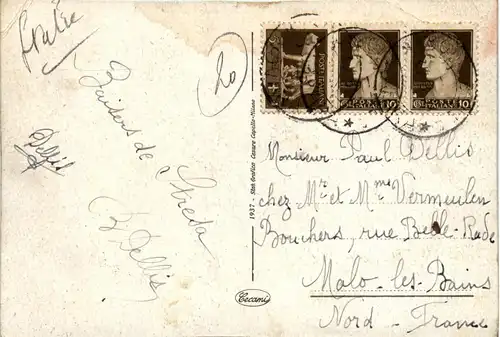 Italie
20
Baisers de
Stresa
Dellis
Dellis
1937 - Stab. Grafico Cesare Capello - Milano
Cecami
POSTE ITALIANE
POSTE ITALIANE 10
POSTE ITALIANE 10
Monsieur Paul Dellis
chez Mr et Mme Vermeulen
Bouchers, rue Belle-Rade
Malo-les-Bains
Nord - France